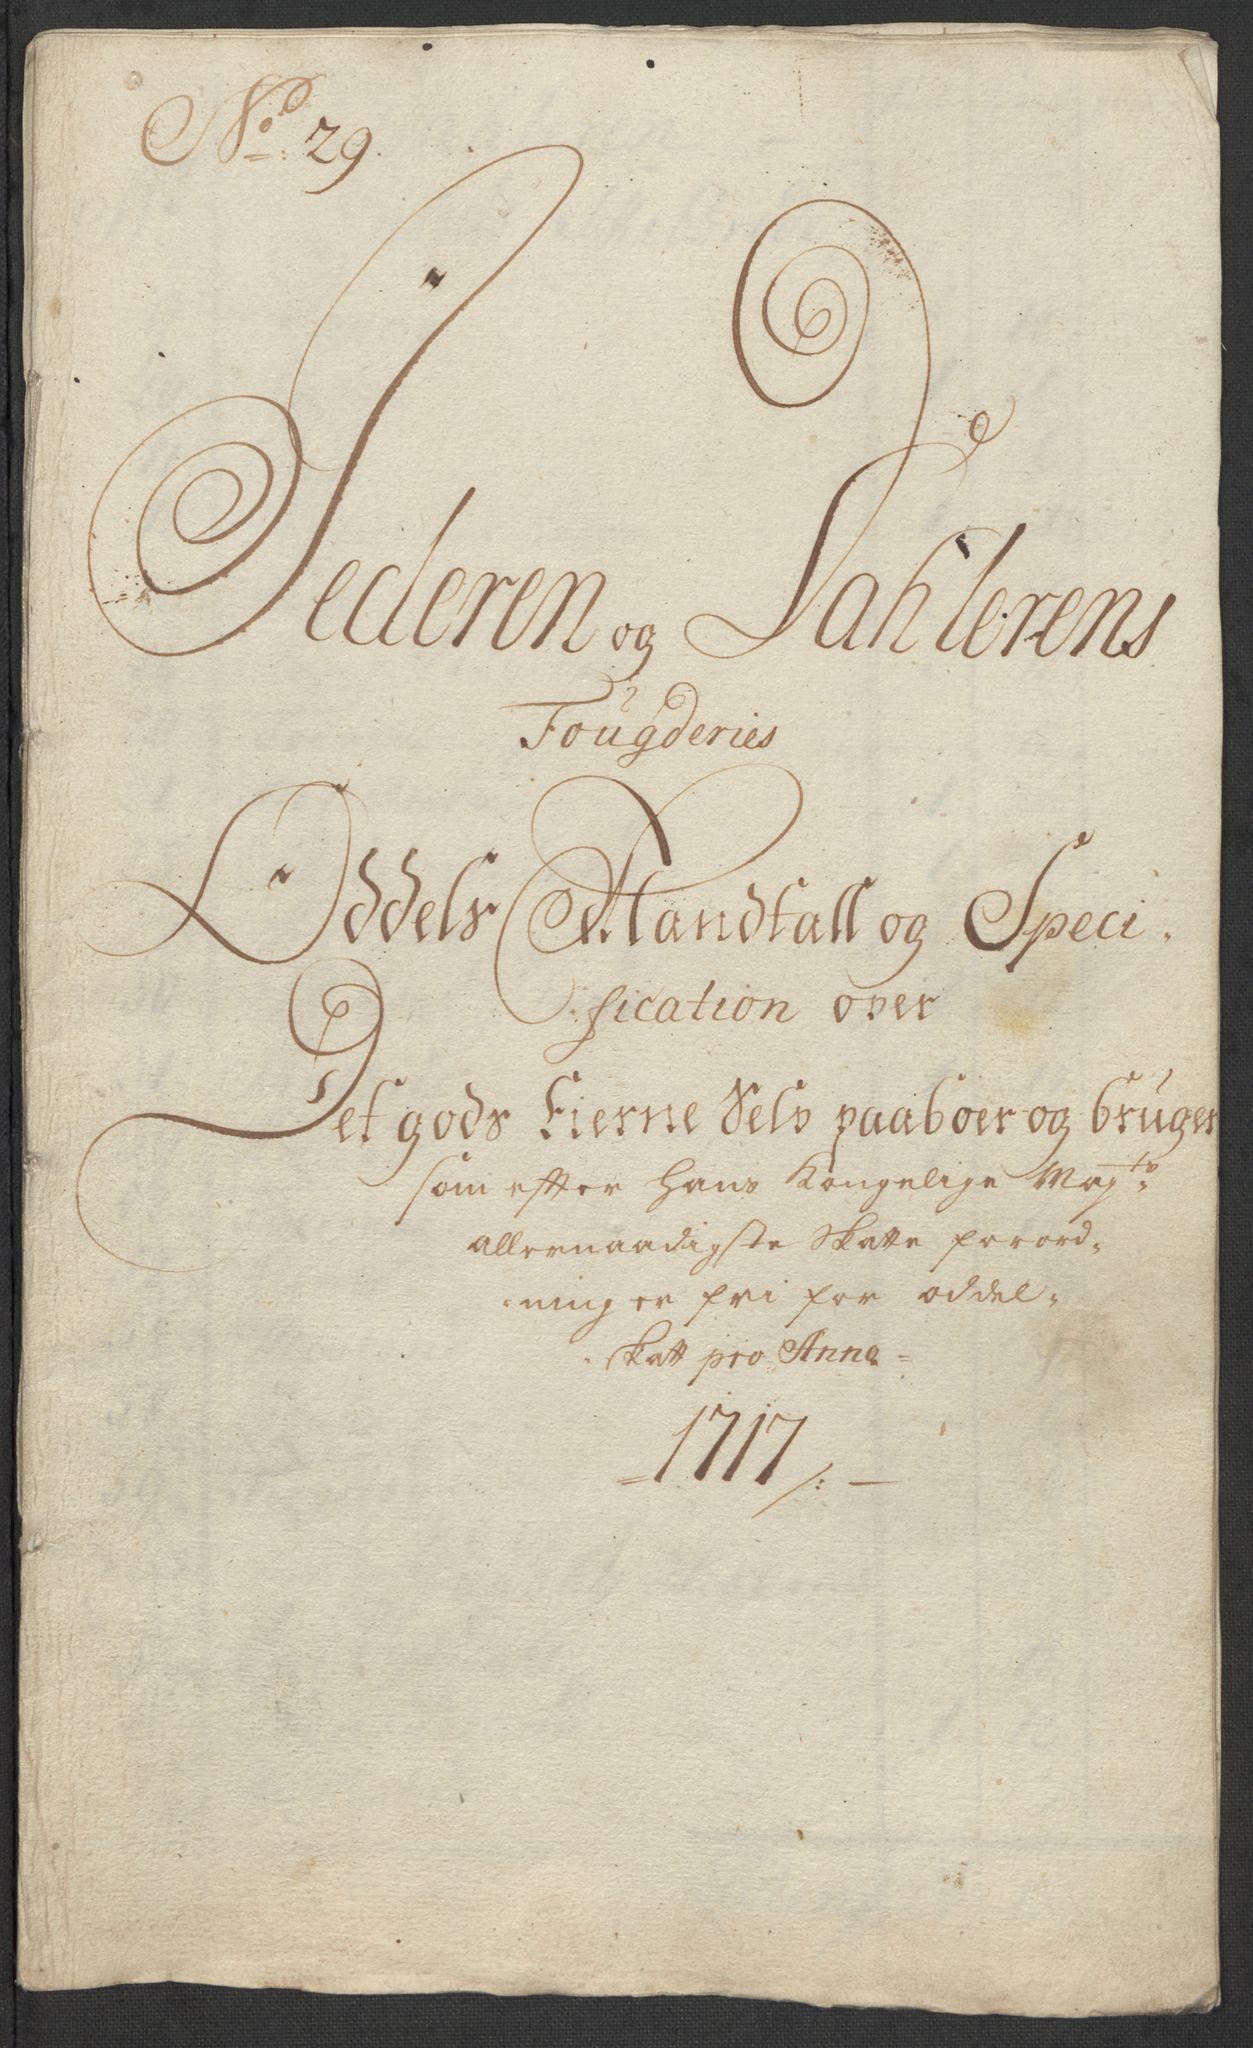 No 29.
Jederen og Dahlerens
Fougderies
Oddels Mandtall og Speci-
fication over
Det gods Eierne Selv paaboer og bruger
som efter Hans Kongelige Mayts
allernaadigste Skatte forord-
ning er fri for oddel-
Skatt pro Anno
1717